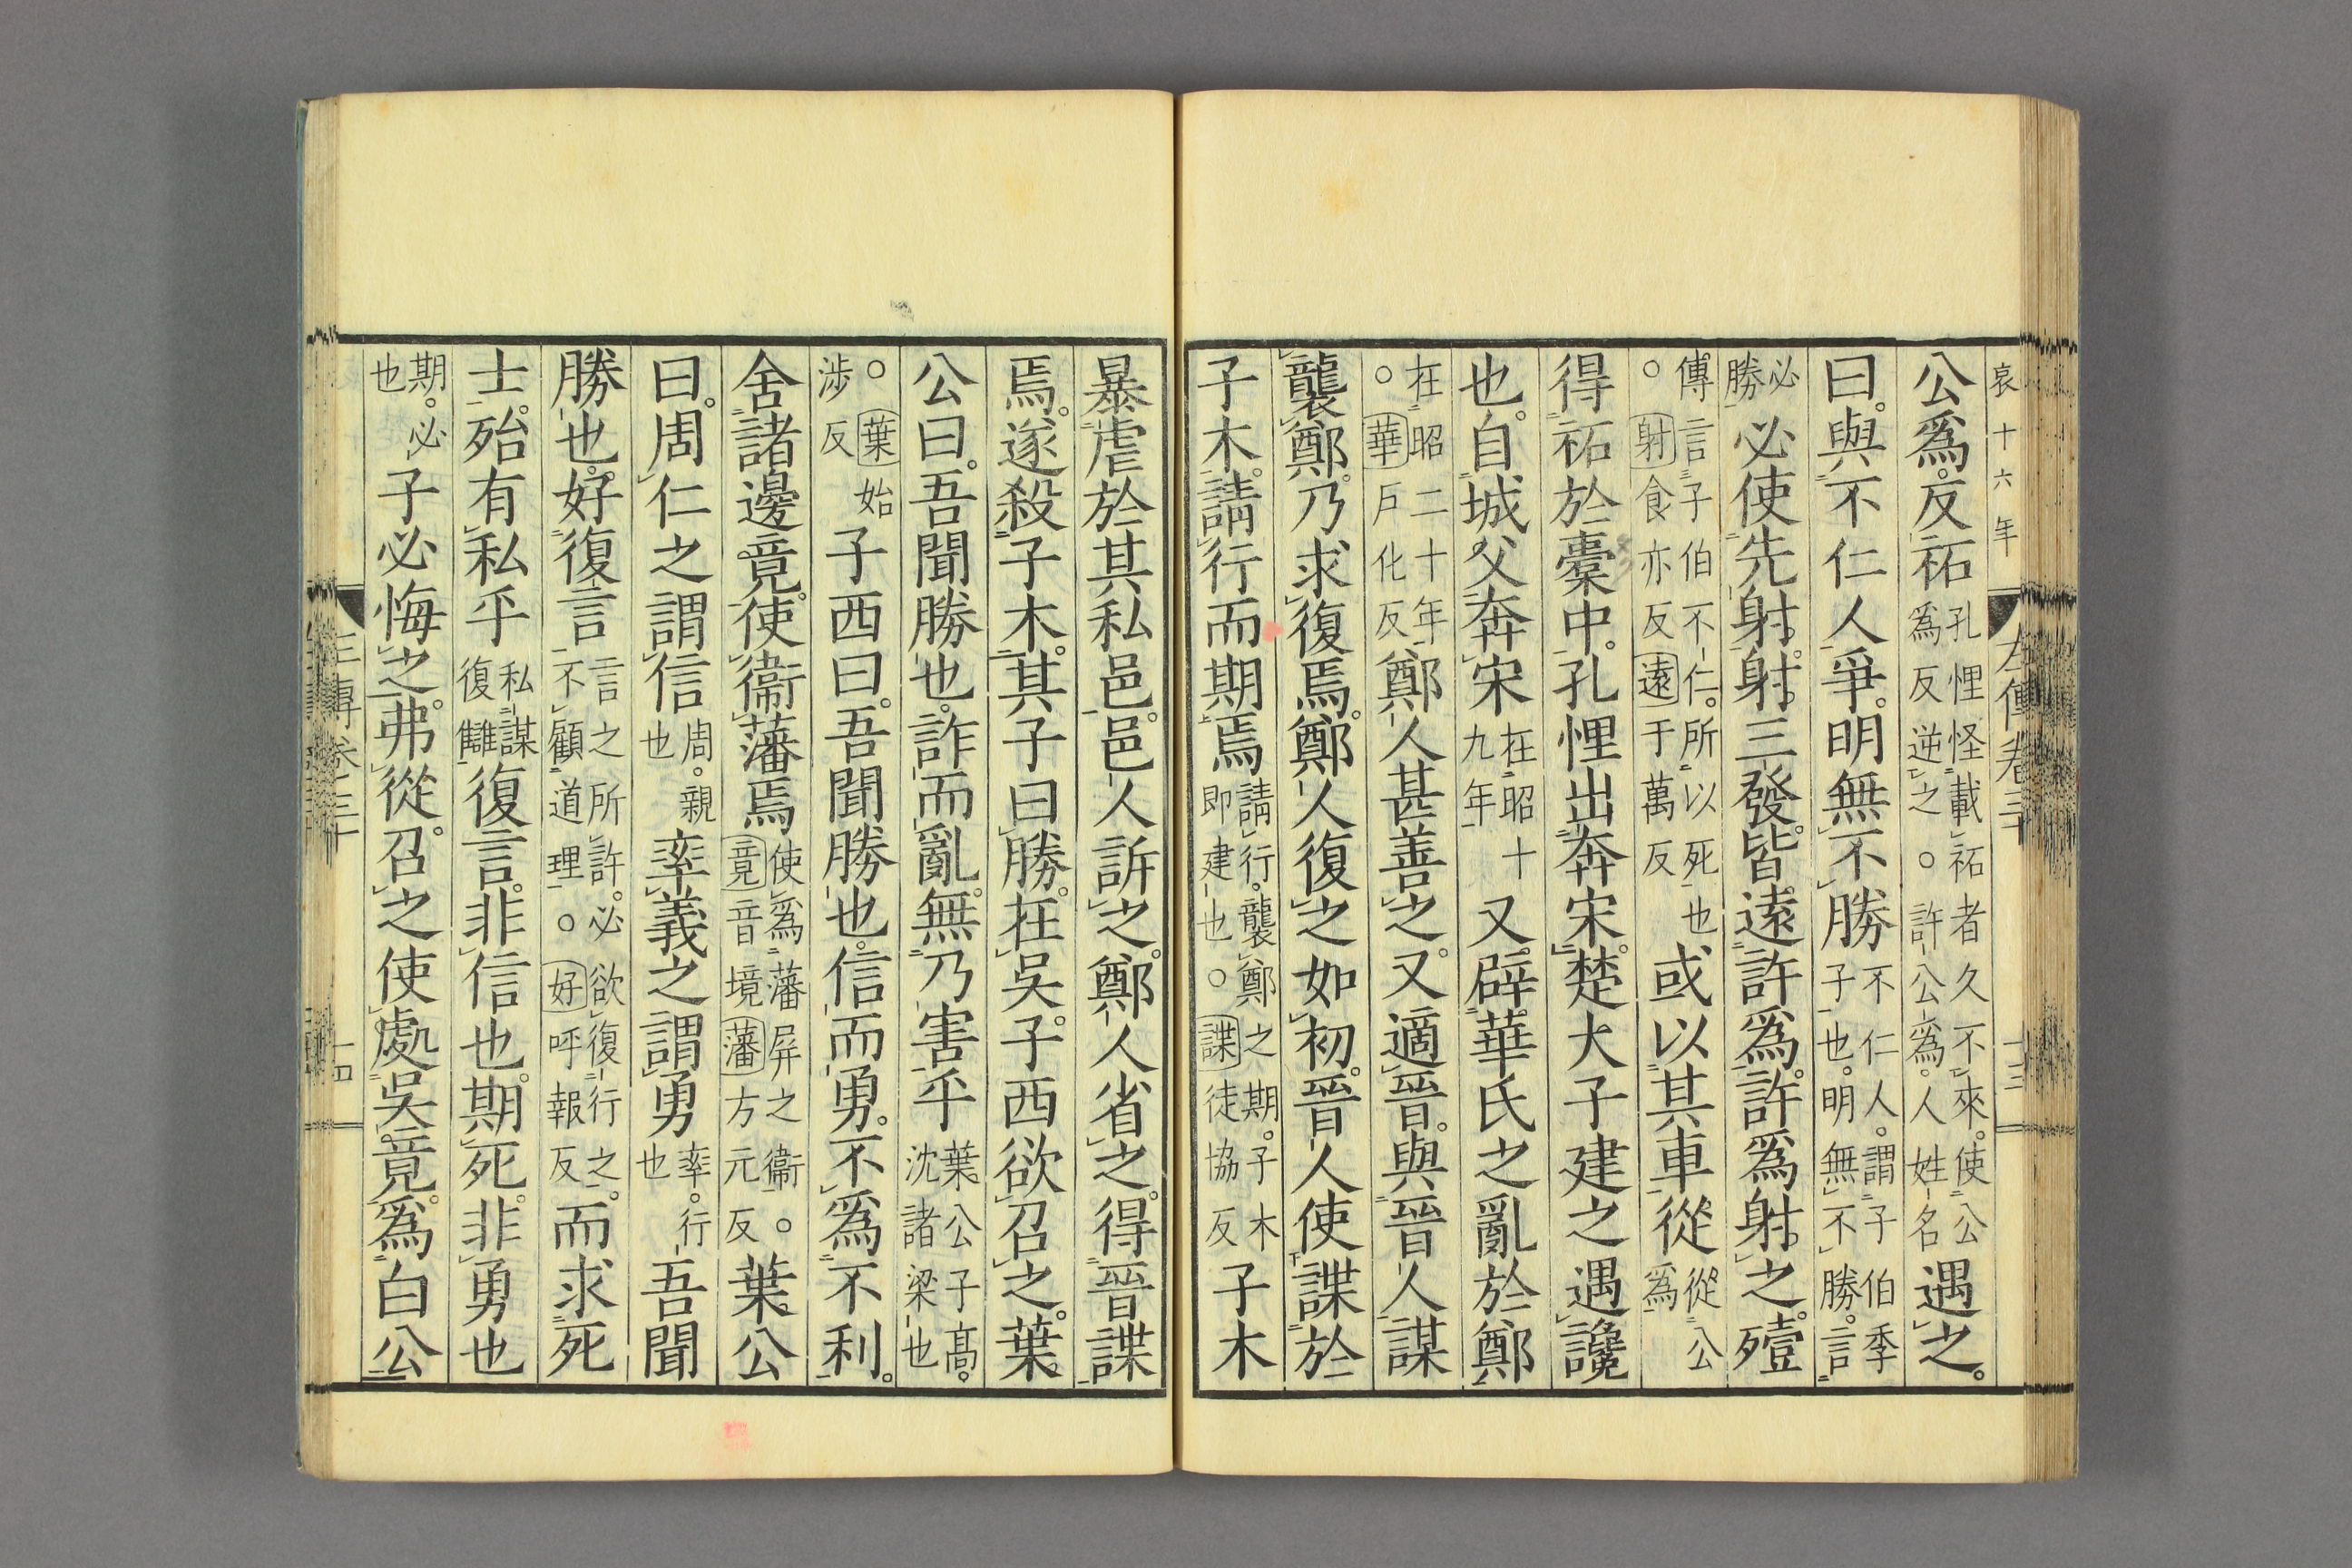 哀十六年
公爲。反祏孔悝怪載祏者久不來。使公爲反逆之○許公爲。人姓名遇之。
曰。與不仁人爭。明無不勝不仁人。謂子伯季子也。明無不勝。言
必勝必使先射。射。三發。皆遠許爲。許爲射之。殪
傳言子伯不仁。所以死也○射食亦反遠于萬反或以其車從從公爲
得祏於櫜中。孔悝出奔宋。楚大子建之遇讒
也。自城父奔宋在昭十九年又辟華氏之亂於鄭
在昭二十年○華戶化反鄭人甚善之。又適晉。與晉人謀
襲鄭。乃求復焉。鄭人復之如初。晉人使諜於
子木。請行而期焉請行。襲鄭之期。子木即建也。○諜徒協反子木
左傳卷三十
十三
暴虐於其私邑。邑人訴之。鄭人省之。得晉諜
焉。遂殺子木。其子曰勝。在吳。子西欲召之。葉
公曰。吾聞勝也。詐而亂。無乃害乎葉公子高。沈諸梁也
○葉始涉反子西曰。吾聞勝也。信而勇。不爲不利。
舍諸邊竟。使衞藩焉使爲藩屏之衞。○竟音境藩方元反葉公
曰。周仁之謂信周。親也率義之謂勇率。行也吾聞
勝也。好復言言之所許。必欲復行之。不顧道理○好呼報反而求死
士。殆有私乎私謀復讎復言。非信也。期死。非勇也
期。必也子必悔之。弗從。召之使處吳竟。爲白公
左傳卷三十
十四